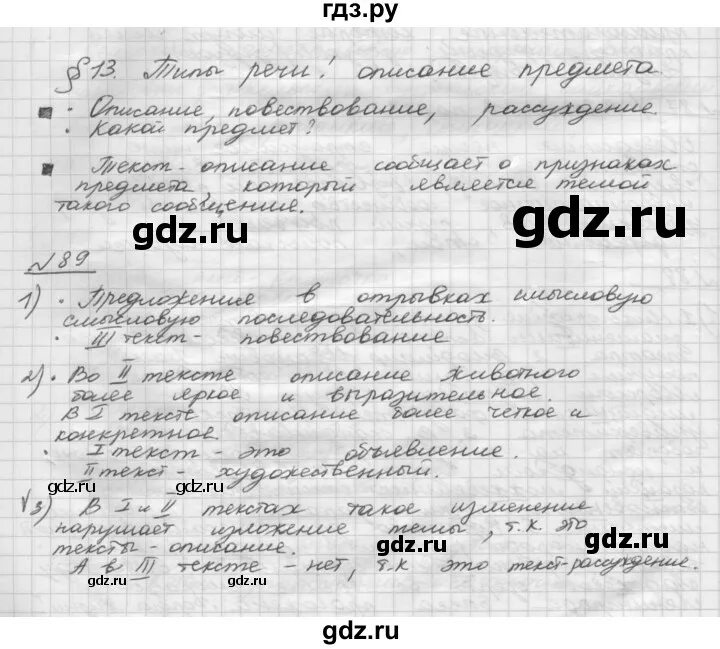 гдз.ру
§ 13. Типы речи: описание предмета
· Описание, повествование, рассуждение.
· Какой предмет?
Текст-описание сообщает о признаках
предмета, который является темой
такого сообщения.
gdz.ru
gdz.ru
№89
1) · Предложение в отрывках смысловую
смысловую последовательность.
· III текст - повествование
2) · Во II тексте описание животного
более яркое и выразительное.
В I тексте описание более четкое и
конкретное.
· I текст - это объявление.
II текст - художественный.
gdz.ru
gdz.ru
3) В I и II текстах такое изменение
нарушает изложение темы, т.к. это
тексты - описание.
gdz.ru
gdz.ru
А в III тексте - нет, т.к это текст-рассуждение.
gdz.ru
gdz.ru
gdz.ru